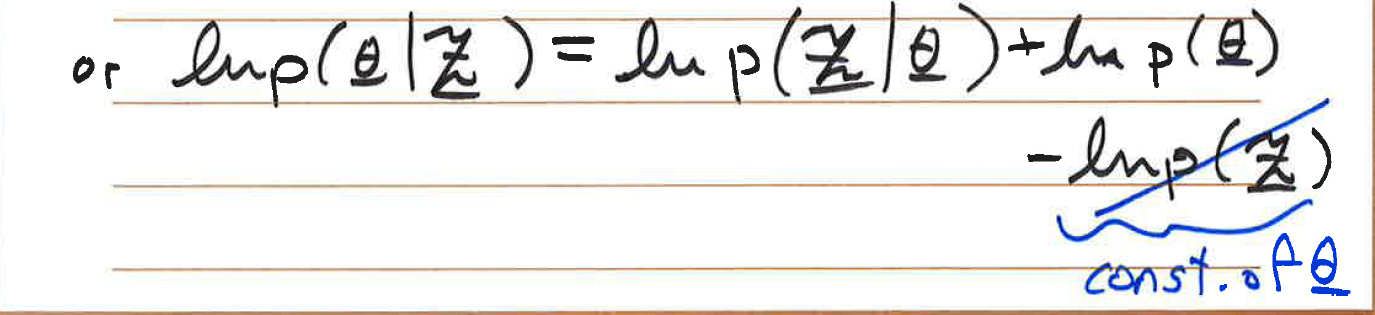 or ln p(θ|z) = ln p(z|θ) + ln p(θ)
- ln p(z)
const. of θ